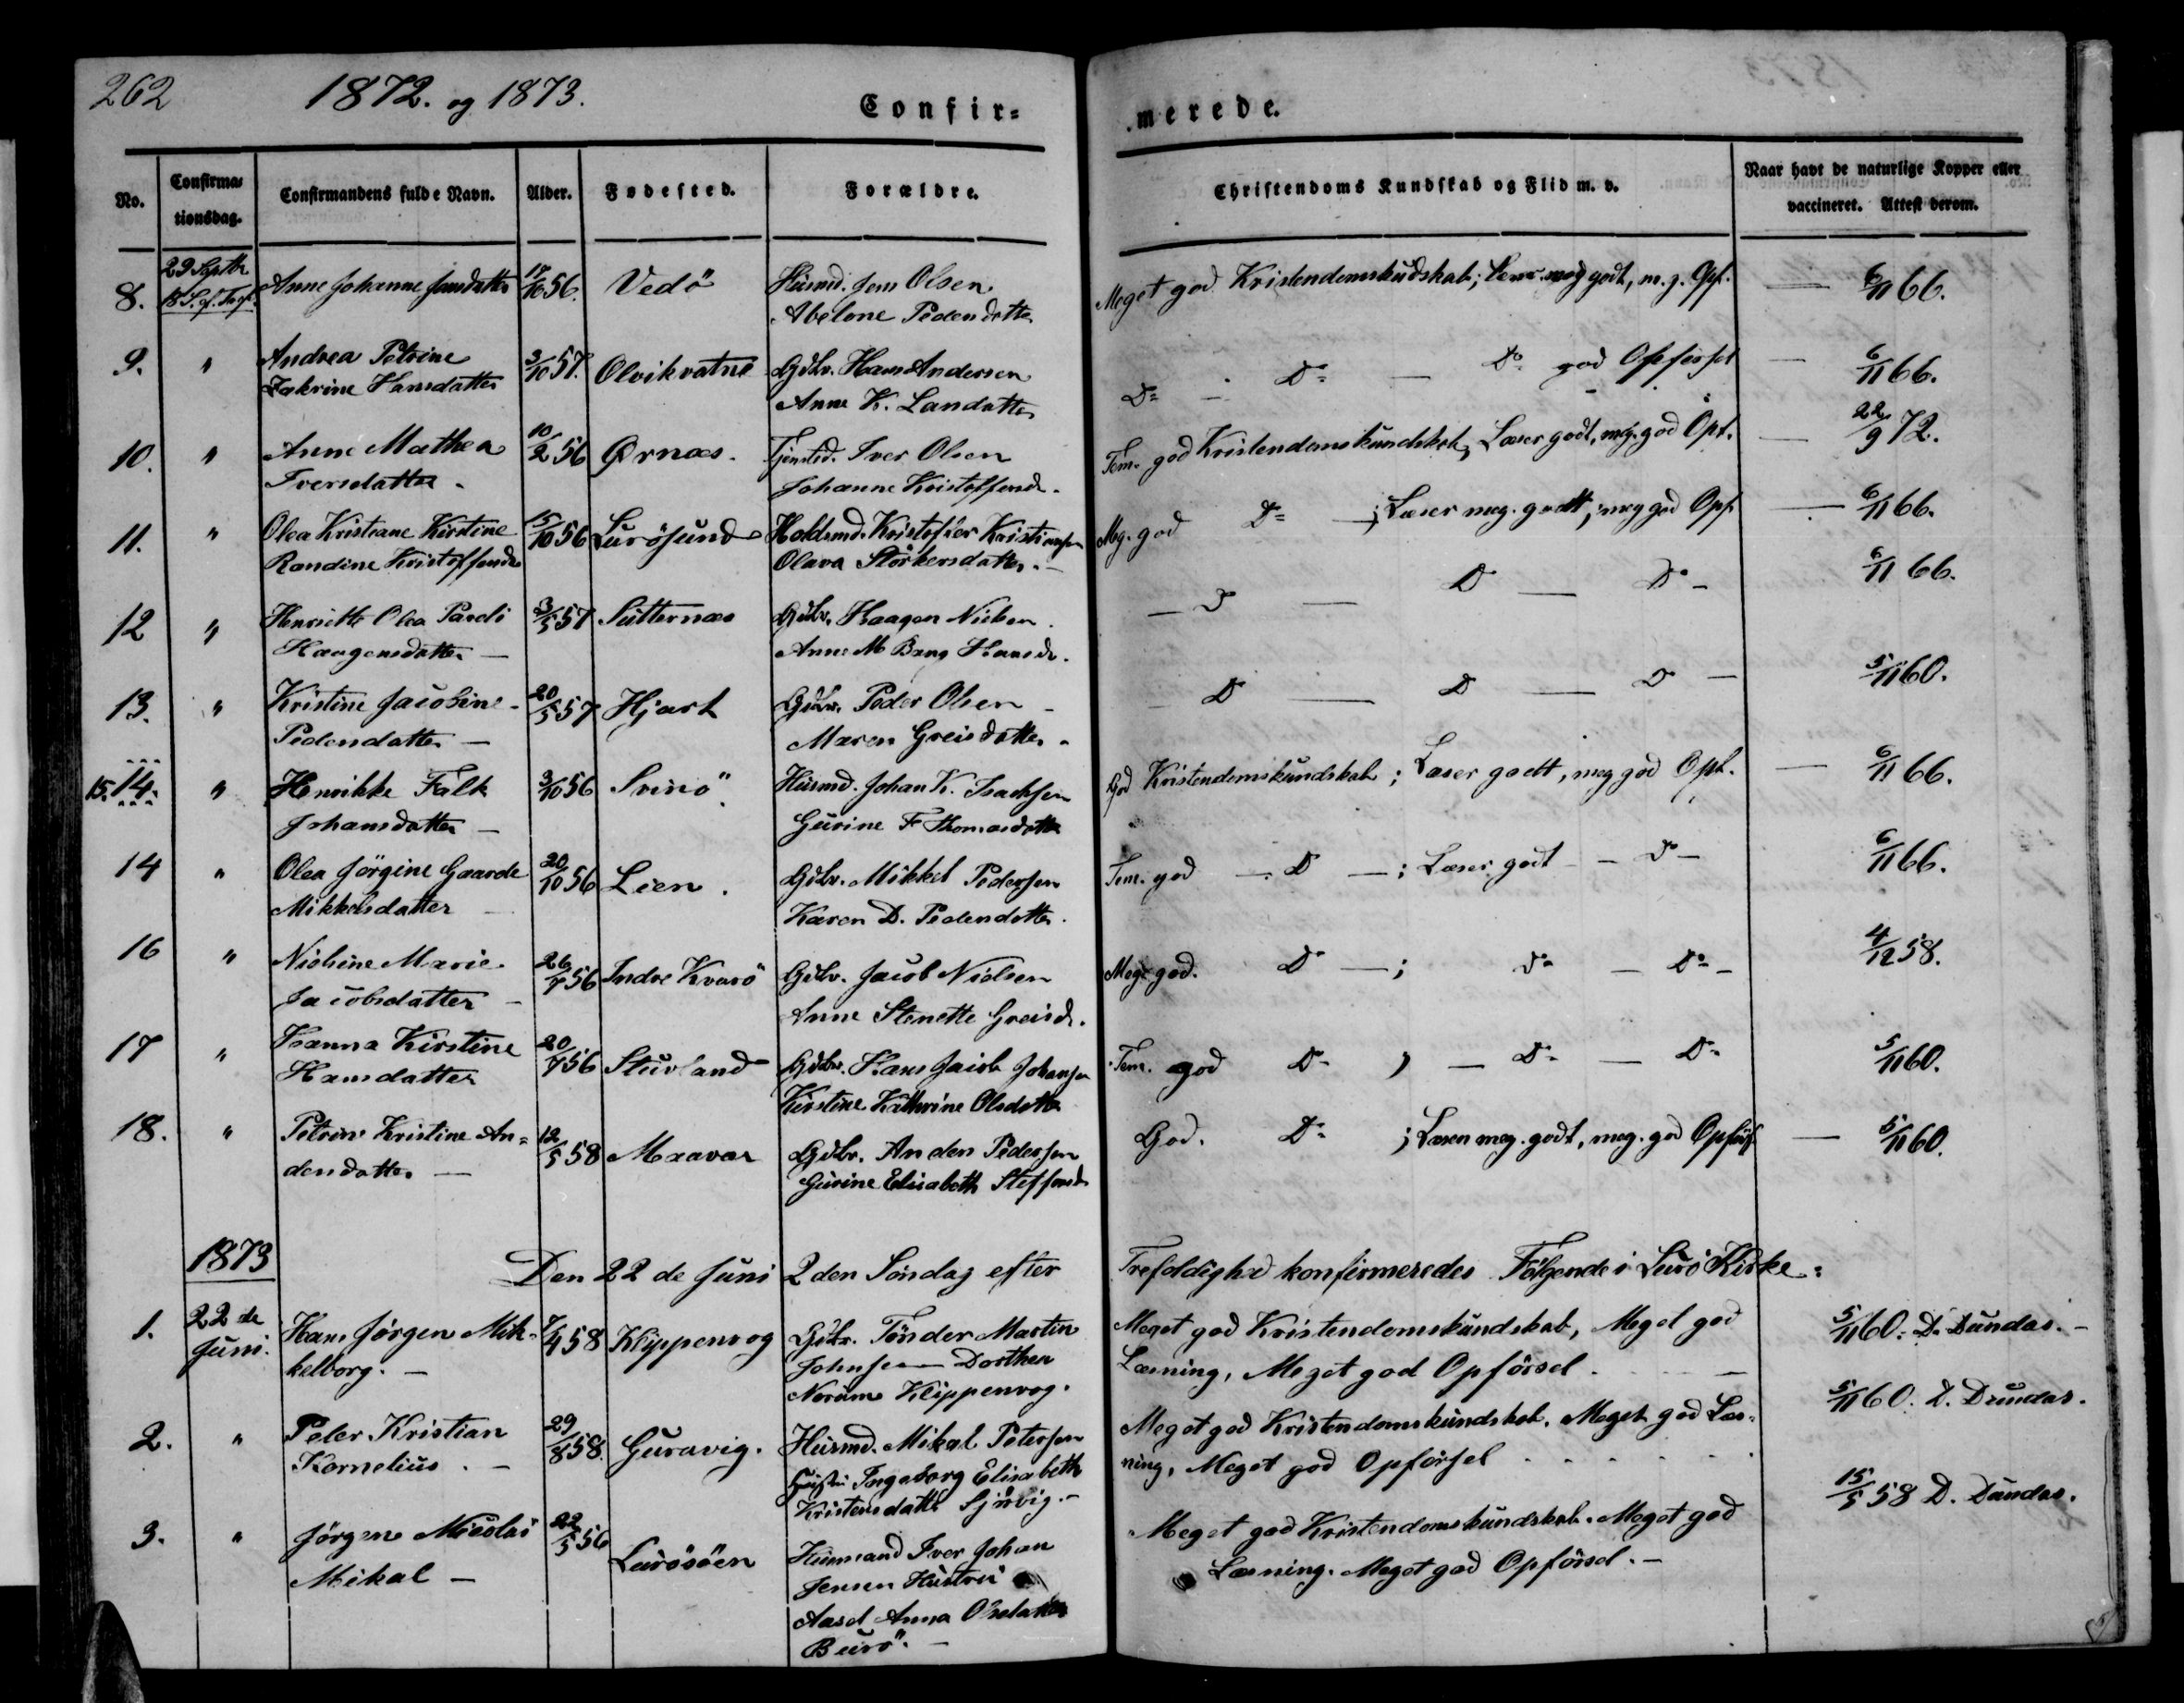 262
1872. og 1873.
Confir=
merede.
No.
Confirma=
tionsdag.
Confirmandens fulde Navn.
Alder.
Fødested.
Forældre.
Christendoms Kundskab og Flid m. v.
Naar havt de naturlige Kopper eller
vaccineret. Attest derom.
8. 29 Septbr. Anne Johanne Jensdatter 17/10 56. Vedö Husmd. Jens Olsen Meget god Kristendomskudskab; Læser meg godt, m. g. Opf. — 6/11 66.
18 S. e. Tref. Abelone Pedersdatter
9. " Andrea Petrine 3/10 57. Olvikvatne Gdbr. Hans Andersen Do — Do — Do god Opförsel — 6/11 66.
Zakrine Hansdatter Anne K. Larsdatter
10. " Anne Mathea 10/2 56 Ørnæs. Tjenstd. Iver Olsen Tem. god Kristendomskundskab, Læser godt, meg. god Opf. — 22/9 72.
Iversdatter. Johanne Kristoffersd.
11. " Olea Kristiane Kirstine 15/10 56 Luröjund Holdsmd. Kristoffer Kristiansen Meg. god Do —; Læser meg. godt, meg god Opf. — 6/11 66.
Randine Kristoffersd. Olava Storkersdatter. —
12 " Henriette Olea Pareli 3/5 57 Sutternæs Gdbr. Haagen Nielsen. — D — D — Do — 6/11 66.
Haagensdatter — Anne M Bang Hansd.
13. " Kristine Jacobine 20/5 57 Hjart Gdbr. Peder Olsen — D — D — D — 5/11 60.
Pedersdatter — Maren Greisdatter.
15. 14. " Henrikke Falk 3/10 56 Svinö Husmd. Johan K. Isachsen God Kristendomskundskab; Læser godt, meg god Opf. — 6/11 66.
Johansdatter — Gurine F Thomasdatter
14 " Olea Jörgine Gaarde 20/10 56 Lien. Gdbr. Mikkel Pedersen Tem. god — D —; Læser godt — D — 6/11 66.
Mikkelsdatter Karen D. Pedersdatter.
16 " Nielsine Marie 26/7 56 Indre Kvarö Gdbr. Jacob Nielsen Meg. god. Do —; Do — Do — 4/12 58.
Jacobsdatter — Anne Stenette Greisd.
17 " Hanna Kirstine 20/7 56 Stuvland Gdbr. Hans Jacob Johansen Tem. god Do ) — Do — Do 5/11 60.
Hansdatter Kirstine Kathrine Olsdatter
18. " Petrine Kristine An= 12/5 58 Maavær Gdbr. Anders Pedersen God. Do ; Læser meg. godt, meg. god Opförs — 5/11 60.
dersdatter — Gurine Elisabeth Steffensd.
1873
Den 22de Juni 2den Söndag efter Trefoldighed konfirmeredes Fölgende i Lurö Kirke:
1. 22de Hans Jörgen Mik= 7/4 58 Klippenvog Gdbr. Tönder Martin Meget god Kristendomskundskab, Meget god 5/11 60. D. Dundas. —
Juni. kelborg. — Johnsen Dorthea Læsning, Meget god Opförsel.
Norum Klippenvog.
2. " Peter Kristian 29/8 58. Guravig. Husmd. Mikal Petersen Meget god Kristendomskundskab. Meget god Læs= 5/11 60. D. Dundas.
Kornelius. — Hustru Ingeborg Elisabeth ning, Meget god Opförsel
Kristensdatter Sjövig. —
3. " Jörgen Nicolai 22/5 56 Luröiöen Husmand Iver Johan Meget god Kristendomskundskab. Meget god 15/5 58 D. Dundas.
Mikal — Jensen Hustru Læsning. Meget god Opförsel. —
Aasel Anna Olsdatter
Burö. —